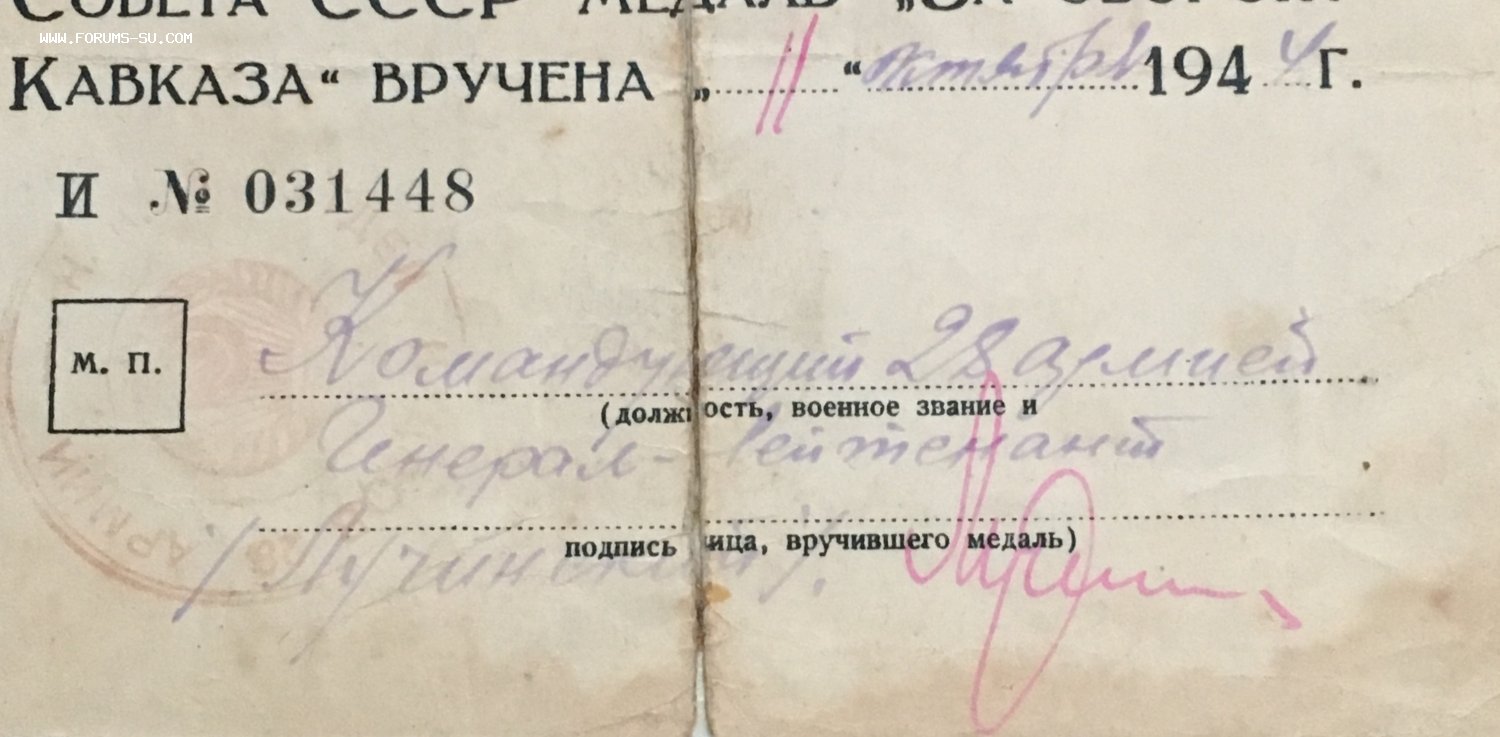 Совета СССР медаль „За оборону
WWW.FORUMS-SU.COM
Кавказа“ вручена „11“ октября 1944 г.
И № 031448
М. П.
Командующий 28 армией
(должность, военное звание и
Генерал-лейтенант
подпись лица, вручившего медаль)
/Лучинский/.
АРМИИ